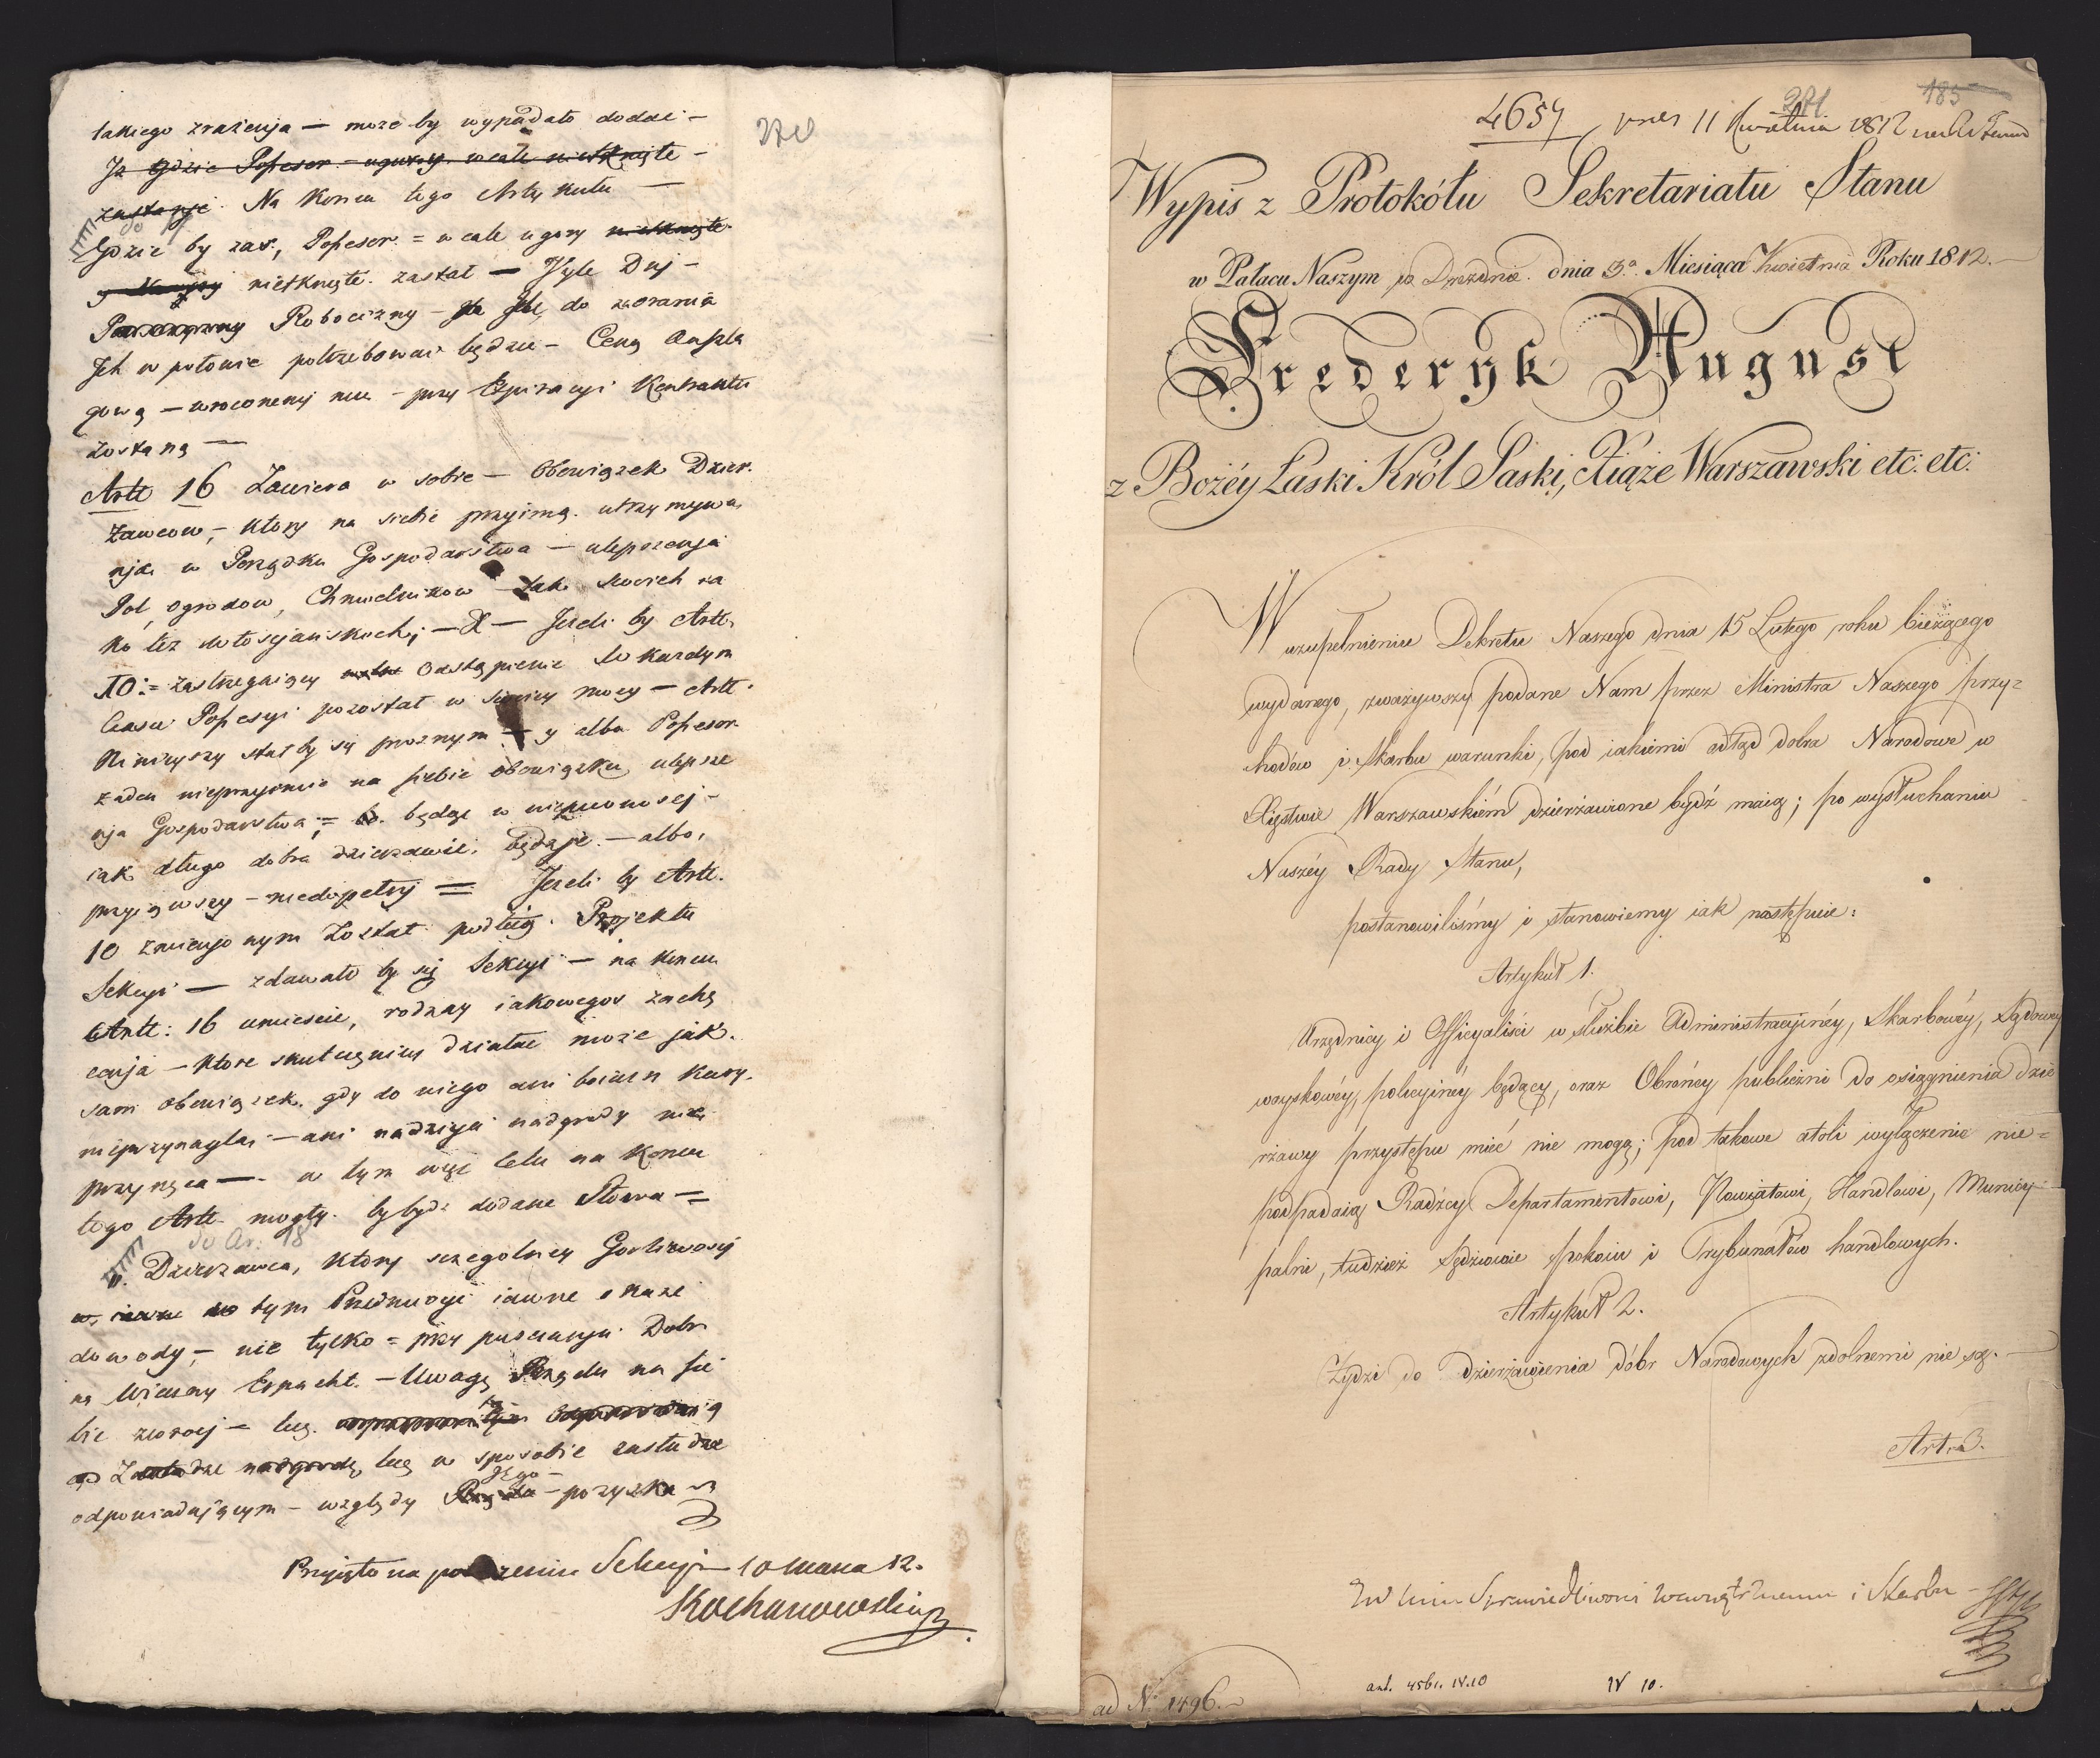 takiego zrażenja — może by wypadało dodać —
Iż gdzie Possesor — ugury wcale nietknięte —
zastanje. Na Koncu tego Artykułu —
do
Gdzie by zaś, Possesor = wcale ugory nietknięte
nietknięte. zastał — Tyle Dnj —
Robocizny — Ile do zaorania
Ich w połowie potrzebować będzie — Ceną Anszla
gową — wrocenemj mu — przy Expiracyi Kontraktu
zostaną —
Artt 16 Zawiera w sobie — Obowiązek Dzier.
żawcow, — ktory na siebie przyimą. utrzymywa,
nja w Porządku Gospodarstwa — ulepszenja
Pol, ogrodow, Chmielnikow — tak Swoich ja
ko też włosyjanskich; — X — Jezeli by Artt.
10: = zastrzegaiący odstąpienie w kazdym
Czasie Possesyi pozostał w swoiey mocy — Artt.
Ninieyszy stał by się proznym — y albo Possesor
żaden nieprzyimie na siebie obowiązku ulepsze
nja Gospodarstwa; = będąc w niepewnosej —
iak długo dobra dzierzawić będzje. — albo,
przyiąwszy — niedopełnj = Jezeli by Artt.
10 zmienjonym Został podług. Projektu
Sekcyi — zdawało by się Sekcyi — na koncu
Artt: 16 umiescić, rodzay iakowegos zachę
cenja — ktore skutecznjey działać może jak.
sam obowiązek. gdy do niego ani boiazn Kary.
nieprzynagla, — ani nadzieja nadgrody nie
przynęca — w tym więc celu na Koncu
tego Artt. mogły. by bydz dodane Słowa =
do Ar: 18
„ Dzierzawca, ktory szczegolney Gorliwosej
w tym Przedmiocje iawne okaze
dowody, — nie tylko = przy puszczanju Dobr
na Wieczny Erpacht. — Uwagę Rządu na sie
bie zwrocj — lecz
nadgrodę, lecz w sposobie zasłudze
Jego —
odpowiadającym — względy — pozyska „
Przyięto na posiedzeniu Sekcyi — 10 Marca 12.
Kochanowski
271
185
4657 pres 11 Kwietnia 1812
Wypis z Protokółu Sekretariatu Stanu
w Pałacu Naszym w Dreznie. dnia 3.a Miesiąca Kwietnia Roku 1812. —
Frederyk August
z Bożéy Łaski Król Saski, Xiąże Warszawski etc: etc:
W uzupełnieniu Dekretu Naszego dnia 15 Lutego roku bieżącego
wydanego, zważywszy podane Nam przez Ministra Naszego przy=
chodów i Skarbu warunki, pod iakiemi odtąd dobra Narodowe w
Xięstwie Warszawskiém dzierżawione bydź maią; po wysłuchaniu
Naszéy Rady Stanu,
postanowiliśmy i stanowiemy iak następuie:
Artykuł 1.
Urzędnicy i Officyaliści w służbie Administracyinéy, Skarbowéy, Sądowéy
woyskowéy, policyinéy będący, oraz Obrońcy publiczni do osiągnienia dzie
rżawy przystępu mieć nie mogą; pod takowe atoli wyłączenie nie=
podpadaią Radźcy Departamentowi, Powiatowi, Handlowi, Municy=
palni, tudzież Sędziowie pokoiu i Trybunałów handlowych.
Artykuł 2.
Żydzi do dzierżawienia dóbr Narodowych zdolnemi nie są. —
Art. 3.
Sprawiedliwosci Wewnętrznemu i Skarbu —
ad N. 1496. —
ant. 4561. IV.10
IV 10.